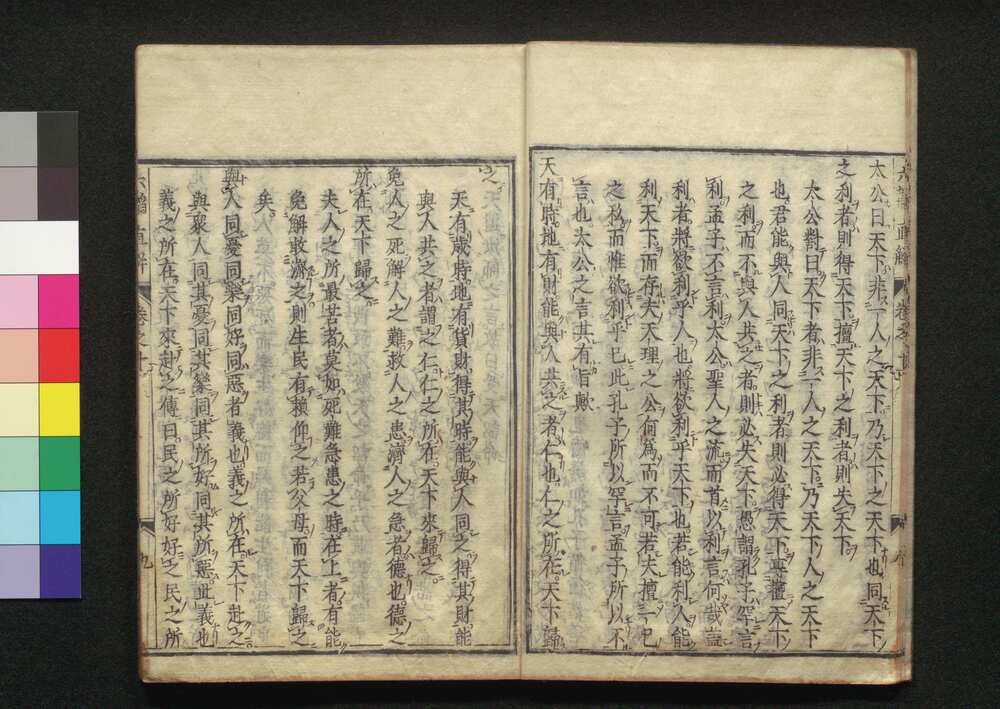 太公曰天下非一人之天下乃天下之天下也同天下
之利者則得天下擅天下之利者則失天下
太公對曰天下者非一人之天下乃天下人之天下
也君能與人同天下之利者則必得天下專擅天下
之利而不與人共之者則必失天下愚謂孔子罕言
利孟子不言利太公聖人之流而首以利言何哉盖
利者將欲利乎人也將欲利乎天下也若能利人能
利天下而存夫天理之公何為而不可若夫擅一己
之私而惟欲利乎己此孔子所以罕言孟子所以不
言也太公之言其有旨歟
天有時地有財能與人共之者仁也仁之所在天下歸
之
天有歲時地有貨財得其時能與人同之得其財能
與人共之者謂之仁仁之所在天下來歸之
免人之死解人之難救人之患濟人之急者德也德之
所在天下歸之
夫人之所最苦者莫如死難急患之時在上者有能
免解救濟之則生民有賴仰之若父母而天下歸之
矣
與人同憂同樂同好同惡者義也義之所在天下赴之
與衆人同其憂同其樂同其所好同其所惡此義也
義之所在天下來赴之傳曰民之所好好之民之所
六韜直解 卷之上 九